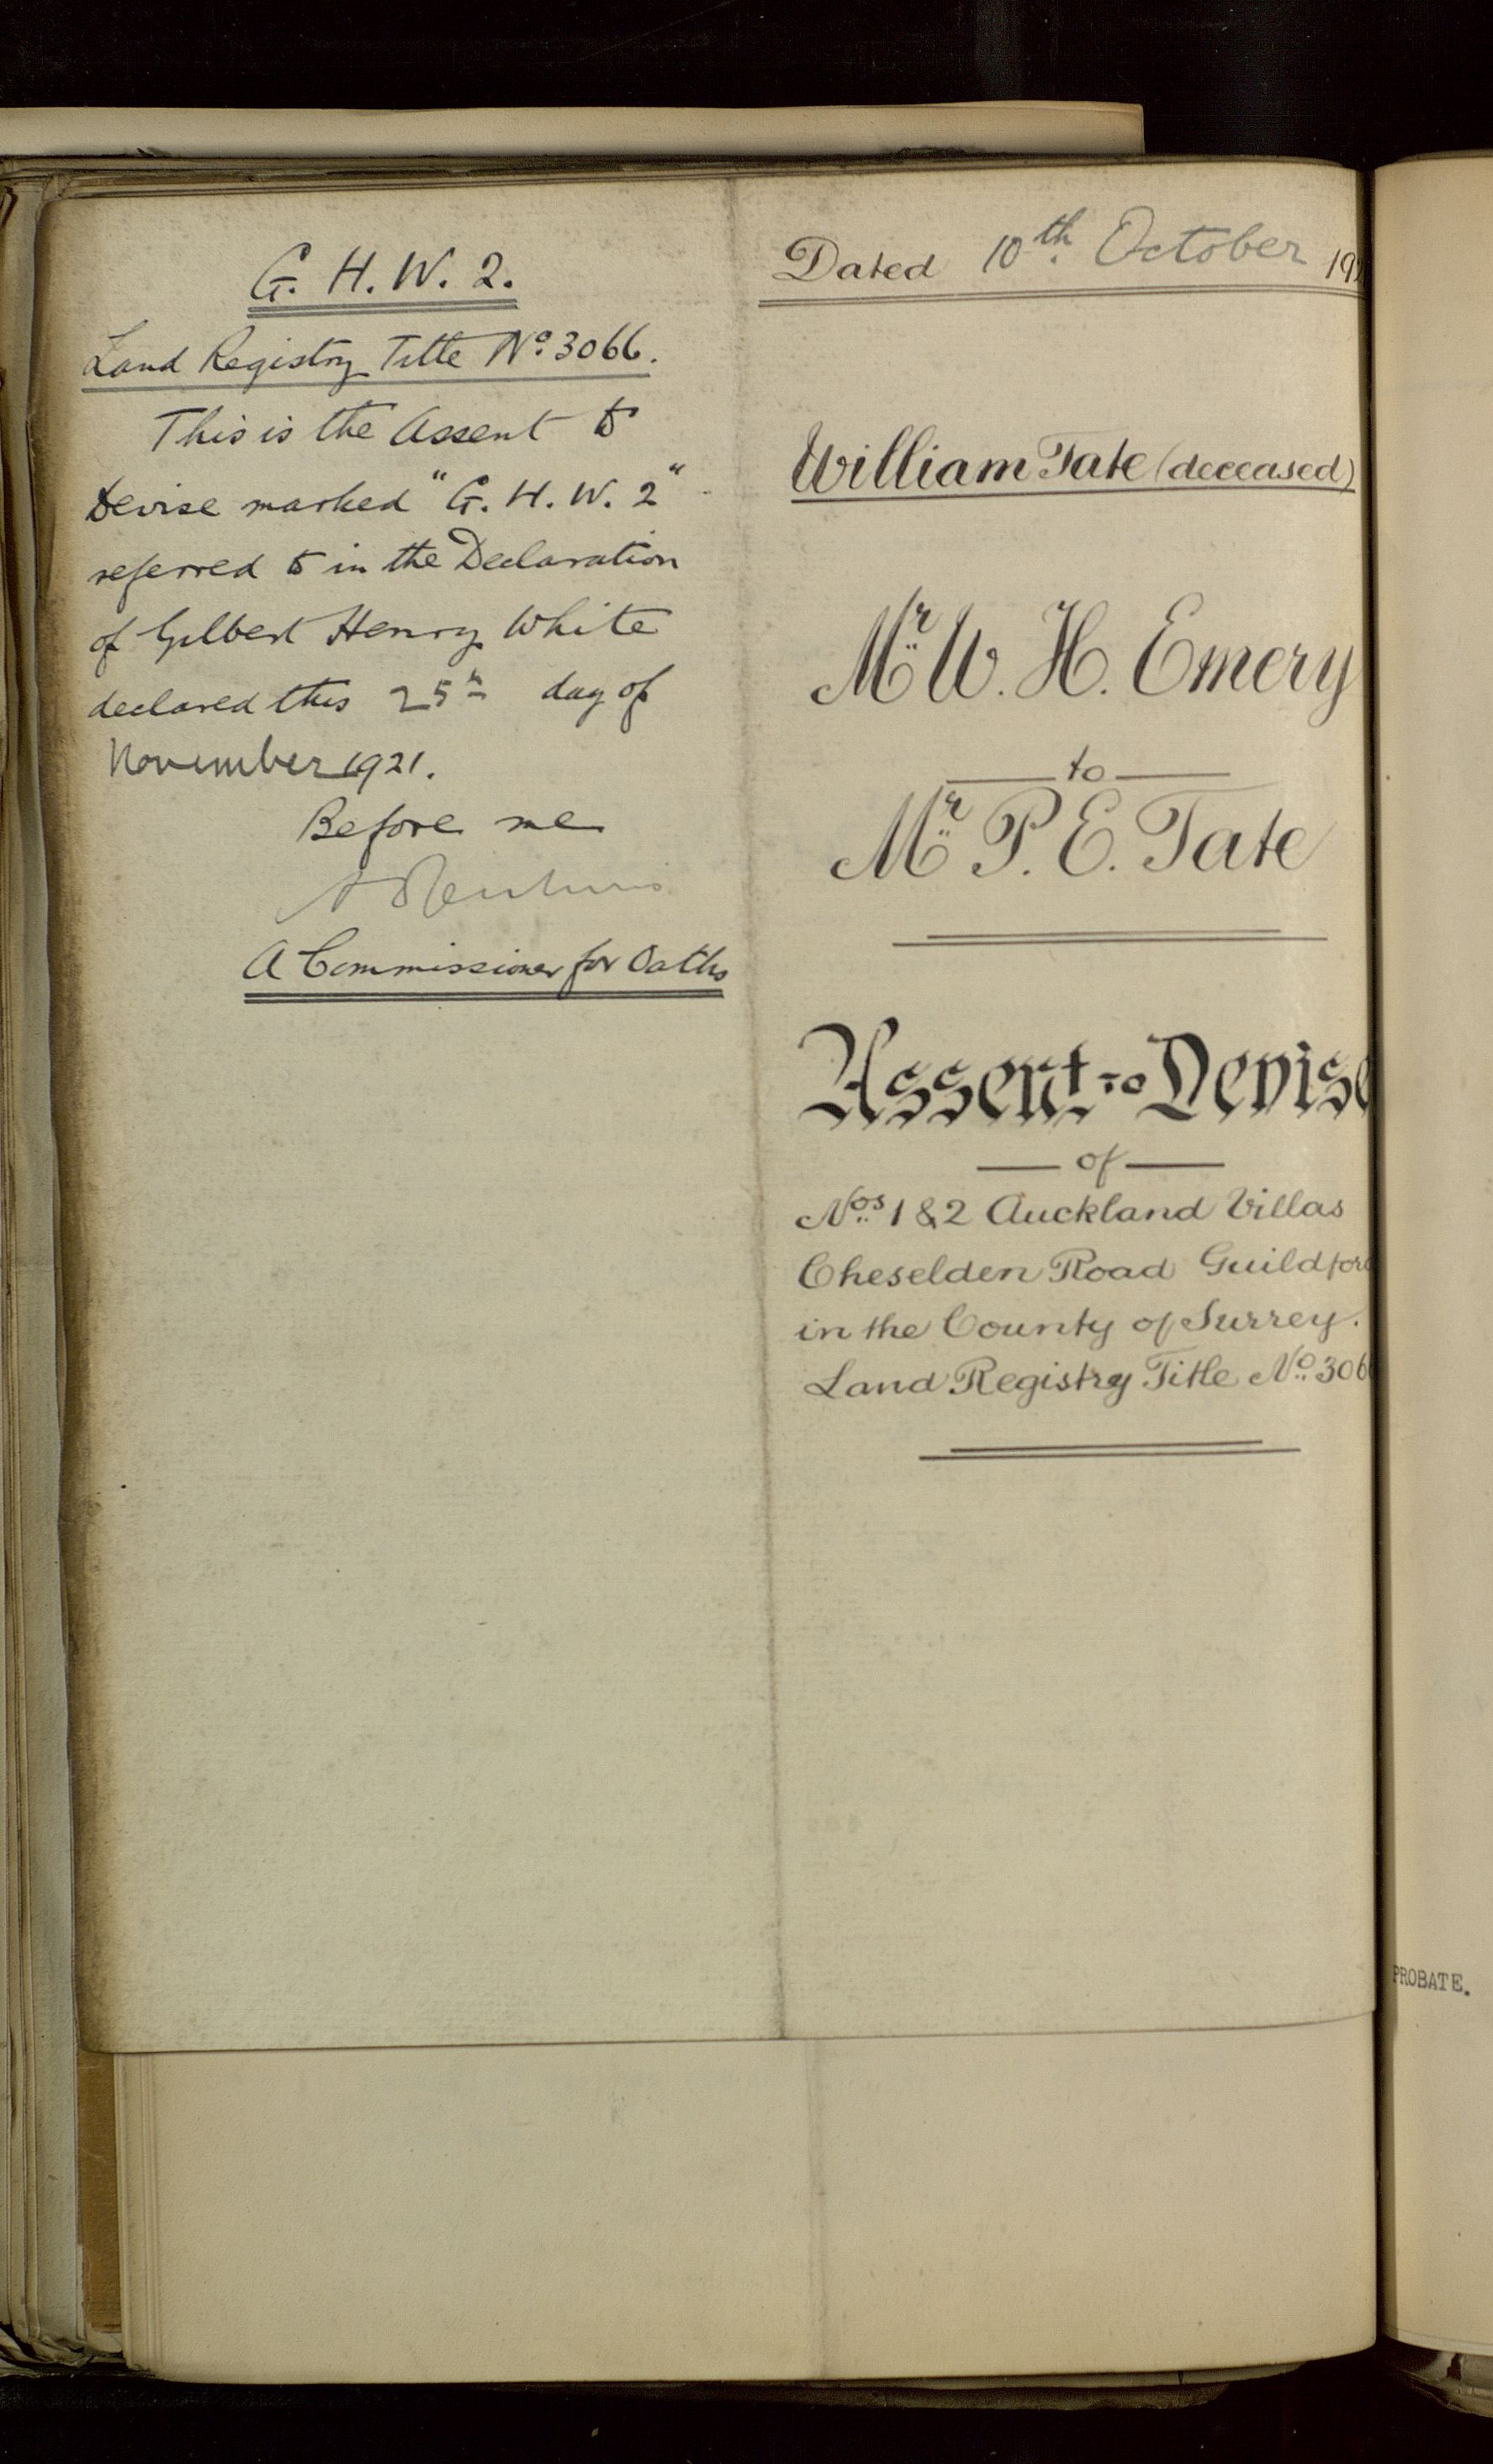 G. H. W. 2.
Land Registry Title No. 3066.
This is the Assent to
Devise marked "G. H. W. 2"
referred to in the Declaration
of Gilbert Henry White
declared this 25th day of
November 1921.
Before me
A Commissioner for Oaths
Dated 10th October 19
William Tate (deceased)
Mr. W. H. Emery
to
Mr. P. E. Tate
Assent to Devise
of
Nos. 1 & 2 Auckland Villas
Cheselden Road Guildford
in the County of Surrey.
Land Registry Title No. 306
PROBATE.